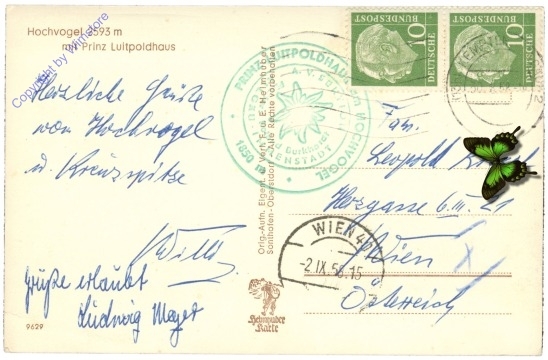 Hochvogel 2593 m
mit Prinz Luitpoldhaus
Copyright by Winistore
Herzliche Grüße
vom Hochvogel
u. Kreuzspitze
Willi
Grüße erlaubt
Ludwig Mayer
9629
Orig.-Aufn. Eigent. u. Verl. F. u. E. Heimhuber
Sonthofen-Oberstdorf - Alle Rechte vorbehalten
PRINZ LUITPOLDHAUS am HOCHVOGEL
1850 m
Heimhuber
Karte
10
DEUTSCHE
BUNDESPOST
10
DEUTSCHE
BUNDESPOST
Fam.
Leopold
Herzgasse 6. III. 21
Wien
Österreich
WIEN
-2.IX.56.15